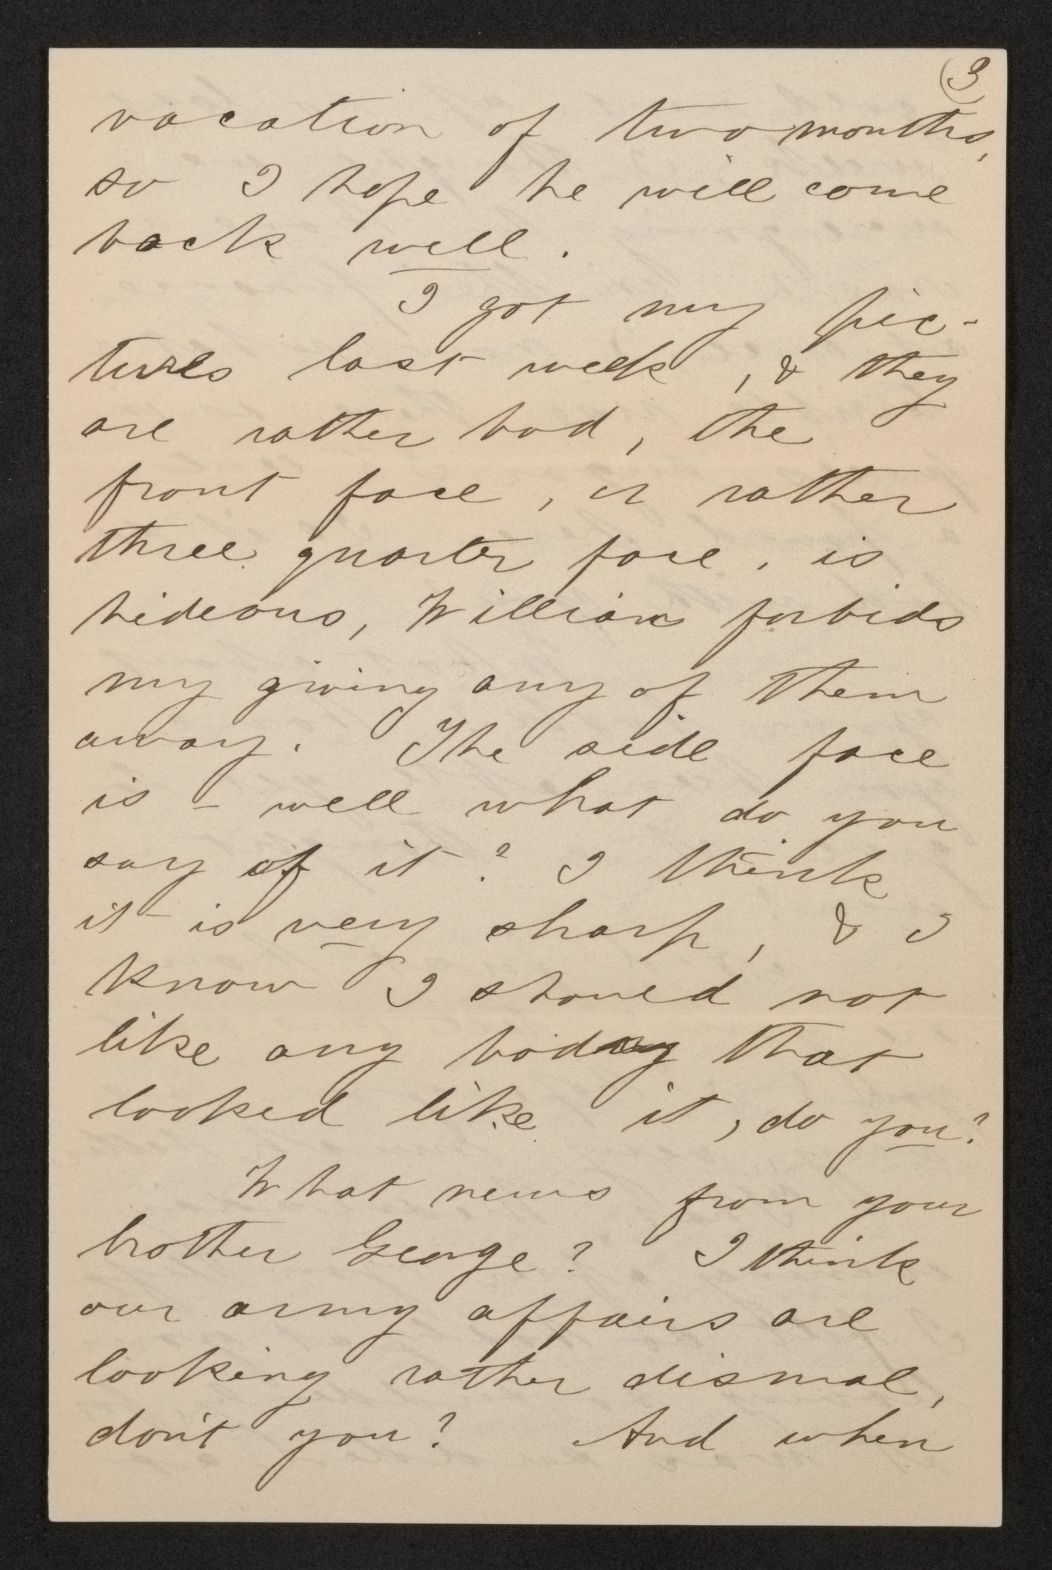 (3
vacation of two months,
so I hope he will come
back well.
I got my pic-
tures last week, & they
are rather bad, the
front face, or rather
three quarter face, is
hideous, William forbids
my giving any of them
away. The side face
is - well what do you
say of it? I think
it is very sharp, & I
know I should not
like any body that
looked like it, do you?
What news from your
brother George? I think
our army affairs are
looking rather dismal,
don't you? And when